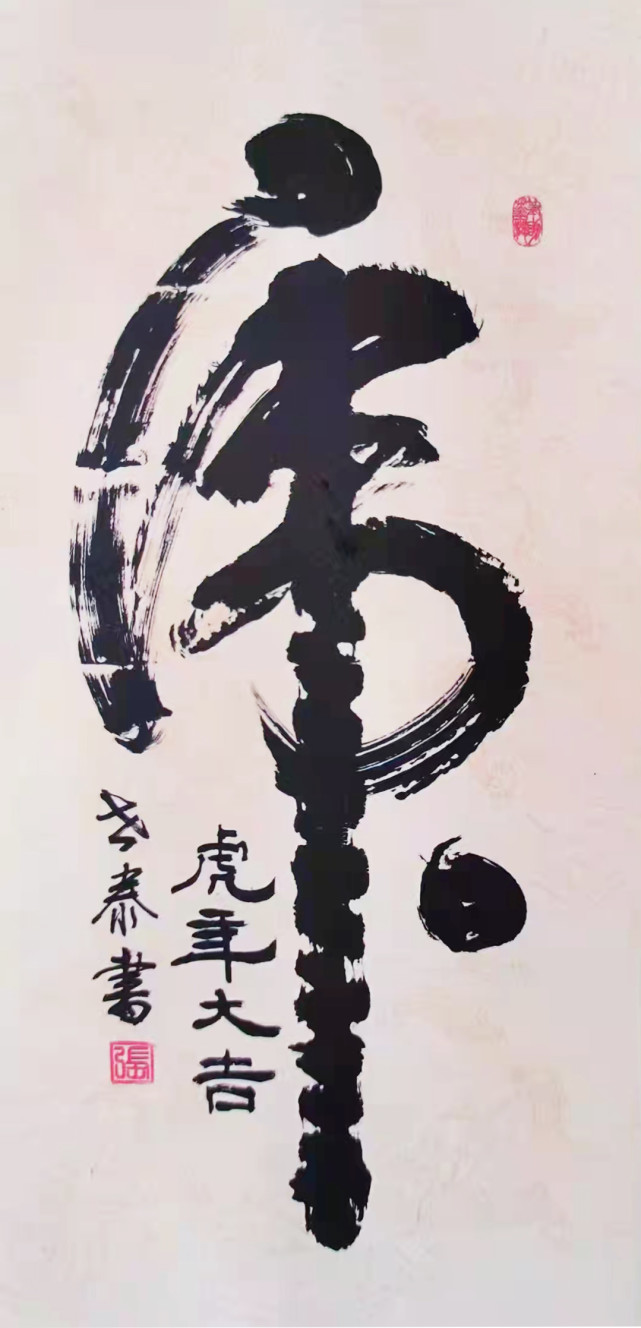 虎
虎年大吉
泰書
張